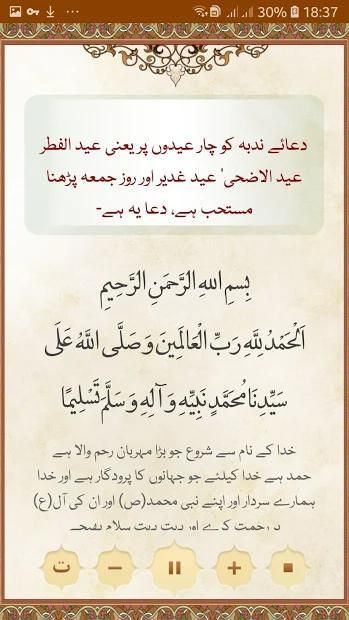 30% 18:37
دعائے ندبہ کو چار عیدوں پر یعنی عید الفطر
عید الاضحی' عید غدیر اور روز جمعہ پڑھنا
مستحب ہے، دعا یہ ہے-
بِسْمِ اللهِ الرَّحْمَنِ الرَّحِيمِ
اَلْحَمْدُ لِلَّهِ رَبِّ الْعَالَمِينَ وَ صَلَّى اللَّهُ عَلَى
سَيِّدِنَا مُحَمَّدٍ نَبِيِّهِ وَ آلِهِ وَ سَلَّمَ تَسْلِيمًا
خدا کے نام سے شروع جو بڑا مہربان رحم والا ہے
حمد ہے خدا کیلئے جو جہانوں کا پرودگار ہے اور خدا
ہمارے سردار اور اپنے نبی محمد(ص) اور ان کی آل(ع)
پر رحمت کرے اور بہت بہت سلام بھیجے
ت − +